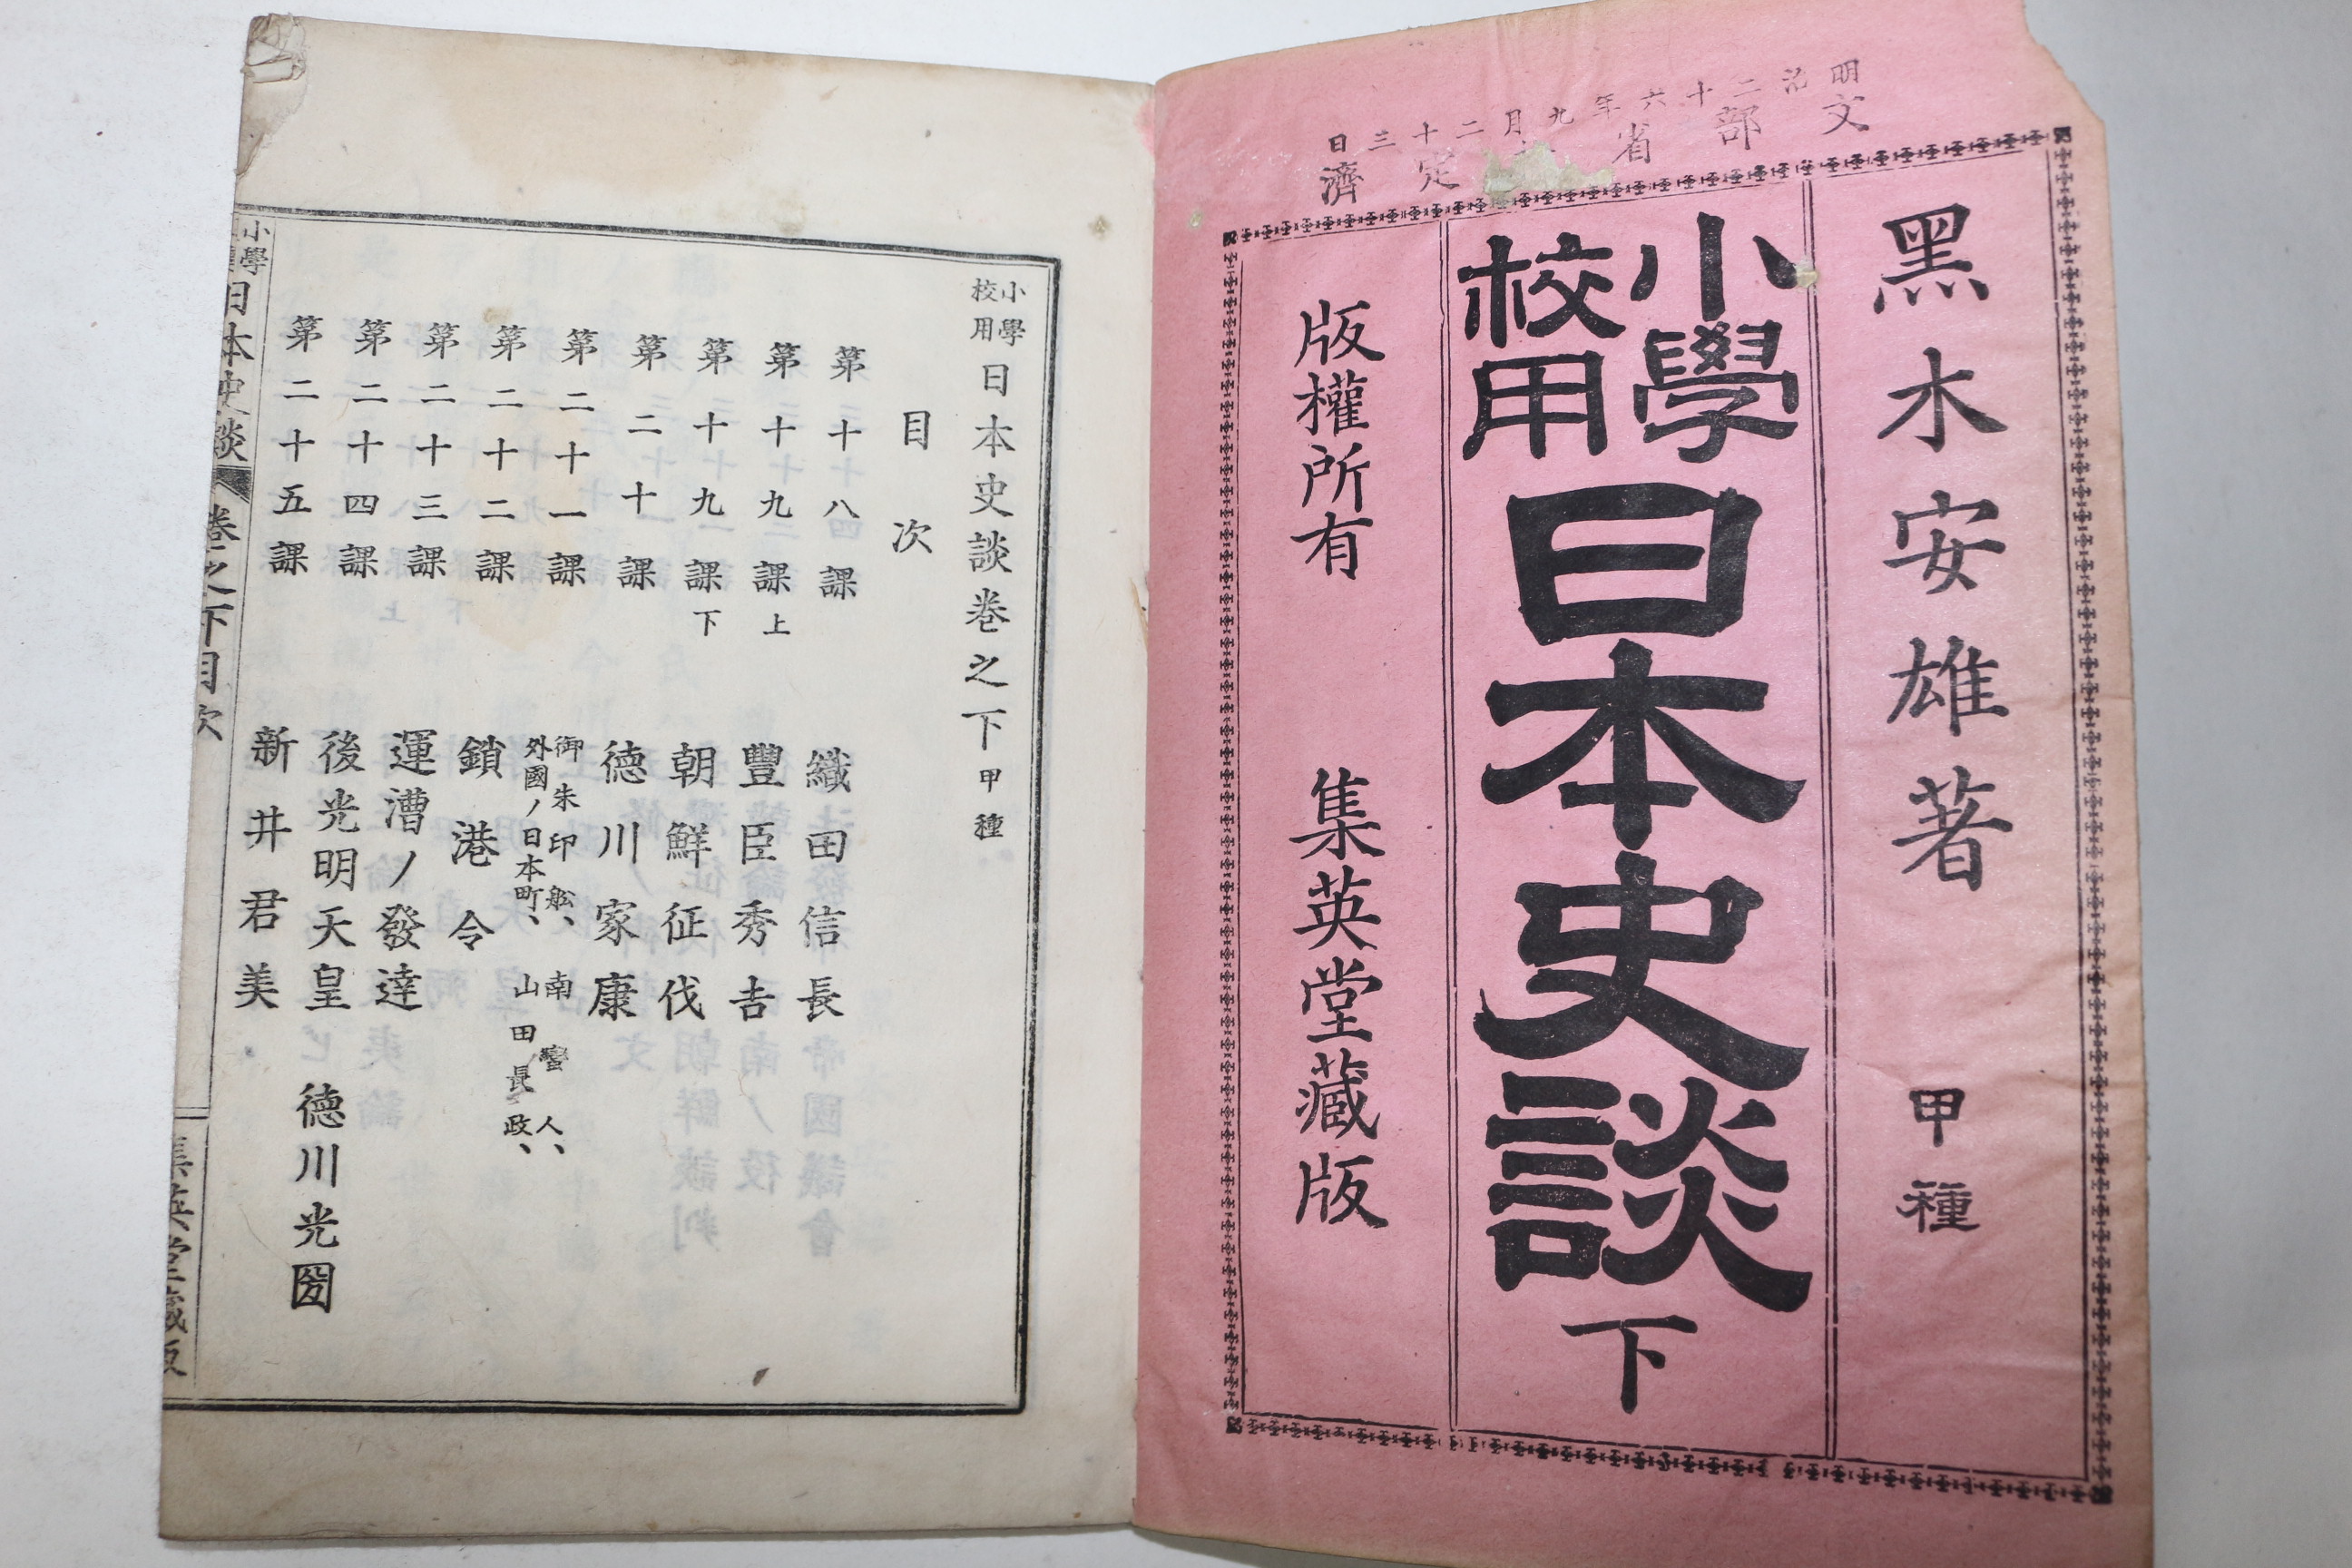 明治二十六年九月二十三日
文部省定濟
黑木安雄著 甲種
小學校用日本史談 下
版權所有 集英堂藏版
小學校用日本史談卷之下 甲種
目次
第十八課 織田信長
第十九課上 豐臣秀吉
第十九課下 朝鮮征伐
第二十課 德川家康
第二十一課 御朱印船、南蠻人、外國ノ日本町、山田長政、
第二十二課 鎖港令
第二十三課 運漕ノ發達
第二十四課 後光明天皇 德川光圀
第二十五課 新井君美
小學日本史談 卷之下目次 集英堂藏版